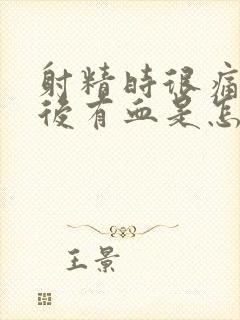 射精時很痛
後有血是怎
王景